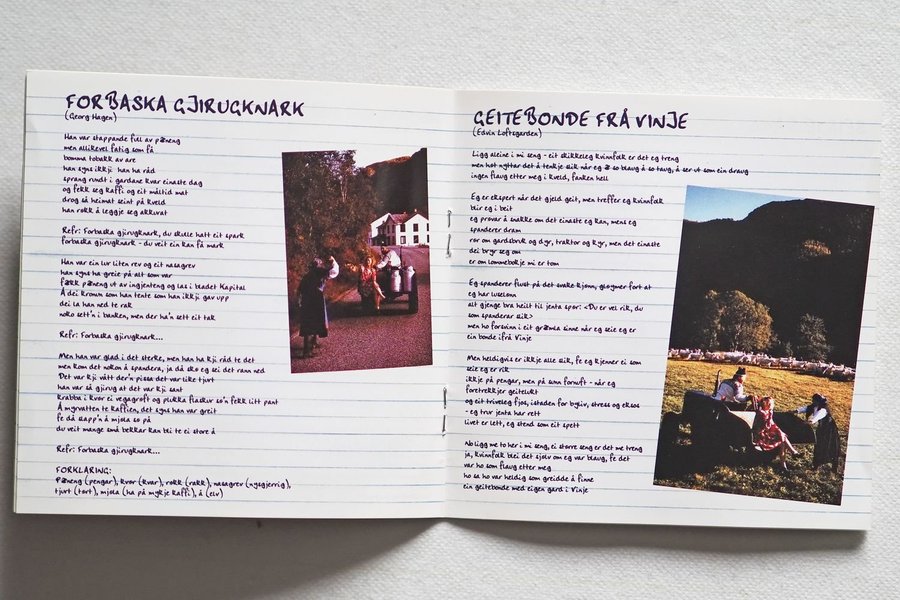 FORBASKA GJIRUGKNARK
(Georg Hagen)
Han var stappande full av pæneng
men allikevel fatig som få
bomma tobakk av are
han syns ikkji han ha råd
sprang rundt i gardane kvar einaste dag
og fekk seg kaffi og eit måltid mat
drog så heimat seint på kveld
han rokk å leggje seg akkurat
Refr: Forbaska gjirugknark, du skulle hatt eit spark
forbaska gjirugknark - du veit ein kan få mark
Han var ein lur liten rev og eit nasagrev
han syns ha greie på alt som var
fækk pæneng ut av ingjenteng og las i bladet Kapital
Å dei kromm som han tente som han ikkji gav upp
dei la han ned te rak
noko sett'n i banken, men der ha'n sett eit tak
Refr: Forbaska gjirugknark...
Men han var glad i det sterke, men han ha kji råd te det
men kom det nokon å spandera, ja då ska eg sei det rann ned
Det var kji vått der'n pissa det var like tjurt
han var så gjirug at det var kji sant
krabba i kvor ei vegagroft og plukka flaskur so'n fekk litt pant
Å myrvatten te kaffien, det syns han var greit
fe då slapp'n å mjola so på
du veit mange små bekkar kan bli te ei store å
Refr: Forbaska gjirugknark...
FORKLARING:
Pæneng (pengar), kvor (kvar), rokk (rakk), nasagrev (nysgjerrig),
tjurt (tørt), mjola (ha på mykje kaffi), å (elv)
GEITEBONDE FRÅ VINJE
(Edvin Loftsgarden)
Ligg aleine i mi seng - eit skikkeleg kvinnfolk er det eg treng
men hot nyttar det å tenkje slik når eg æ so blaug å so taug, å ser ut som ein draug
ingen flaug etter meg i kveld, fanken hell
Eg er ekspert når det gjeld geit, men treffer eg kvinnfolk
blir eg i beit
eg provar å snakke om det einaste eg kan, mens eg
spanderer dram
ror om gardsbruk og dyr, traktor og kyr, men det einaste
dei bryr seg om
er om lommebokje mi er tom
Eg spanderer flust på det svake kjonn, gløymer fort at
eg har luselonn
alt gjenge bra heilt til jenta spor: <Du er vel rik, du
som spanderar slik>
men ho forsvinn i eit græmla sinne når eg seie eg er
ein bonde ifrå Vinje
Men heldigvis er ikkje alle slik, fe eg kjenner ei som
seie eg er rik
ikkje på pengar, men på sunn fornuft - når eg
foretrekkjer geitelukt
og eit triveleg fjos, istaden for byliv, stress og eksos
- eg trur jenta har rett
livet er lett, eg stend som eit spett
No ligg me to her i mi seng, ei storre seng er det me treng
ja, kvinnfolk blei det sjolv om eg var blaug, fe det
var ho som flaug etter meg
ho sa ho var heldig som greidde å finne
ein geitebonde med eigen gard i Vinje